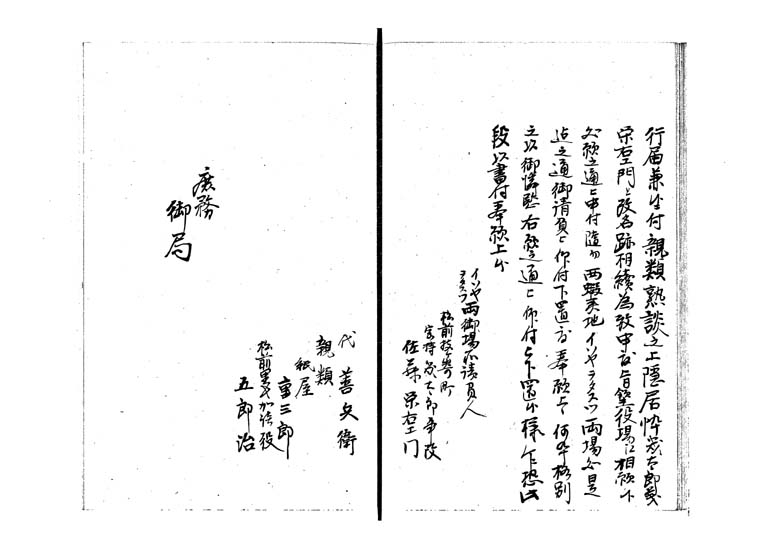 行届兼候付親類熟談之上隠居忰幾太郎義
栄右エ門と改名跡相続為致申度旨 役場江相願候
処願之通被申付 西蝦夷地イソヤヲタスツ両場処是
迄之通御請負被仰付下置度奉願上候何卒格別
之以御憐愍右願之通被仰付被下置候様乍恐此
段以書付奉願上候
イソヤ
ヲタスツ
両御場所請負人
松前枝ヶ崎町
幾太郎事改
佐藤栄右エ門
代 善兵衛
親類
紙屋
重三郎
松前
五郎治
庶務
御局